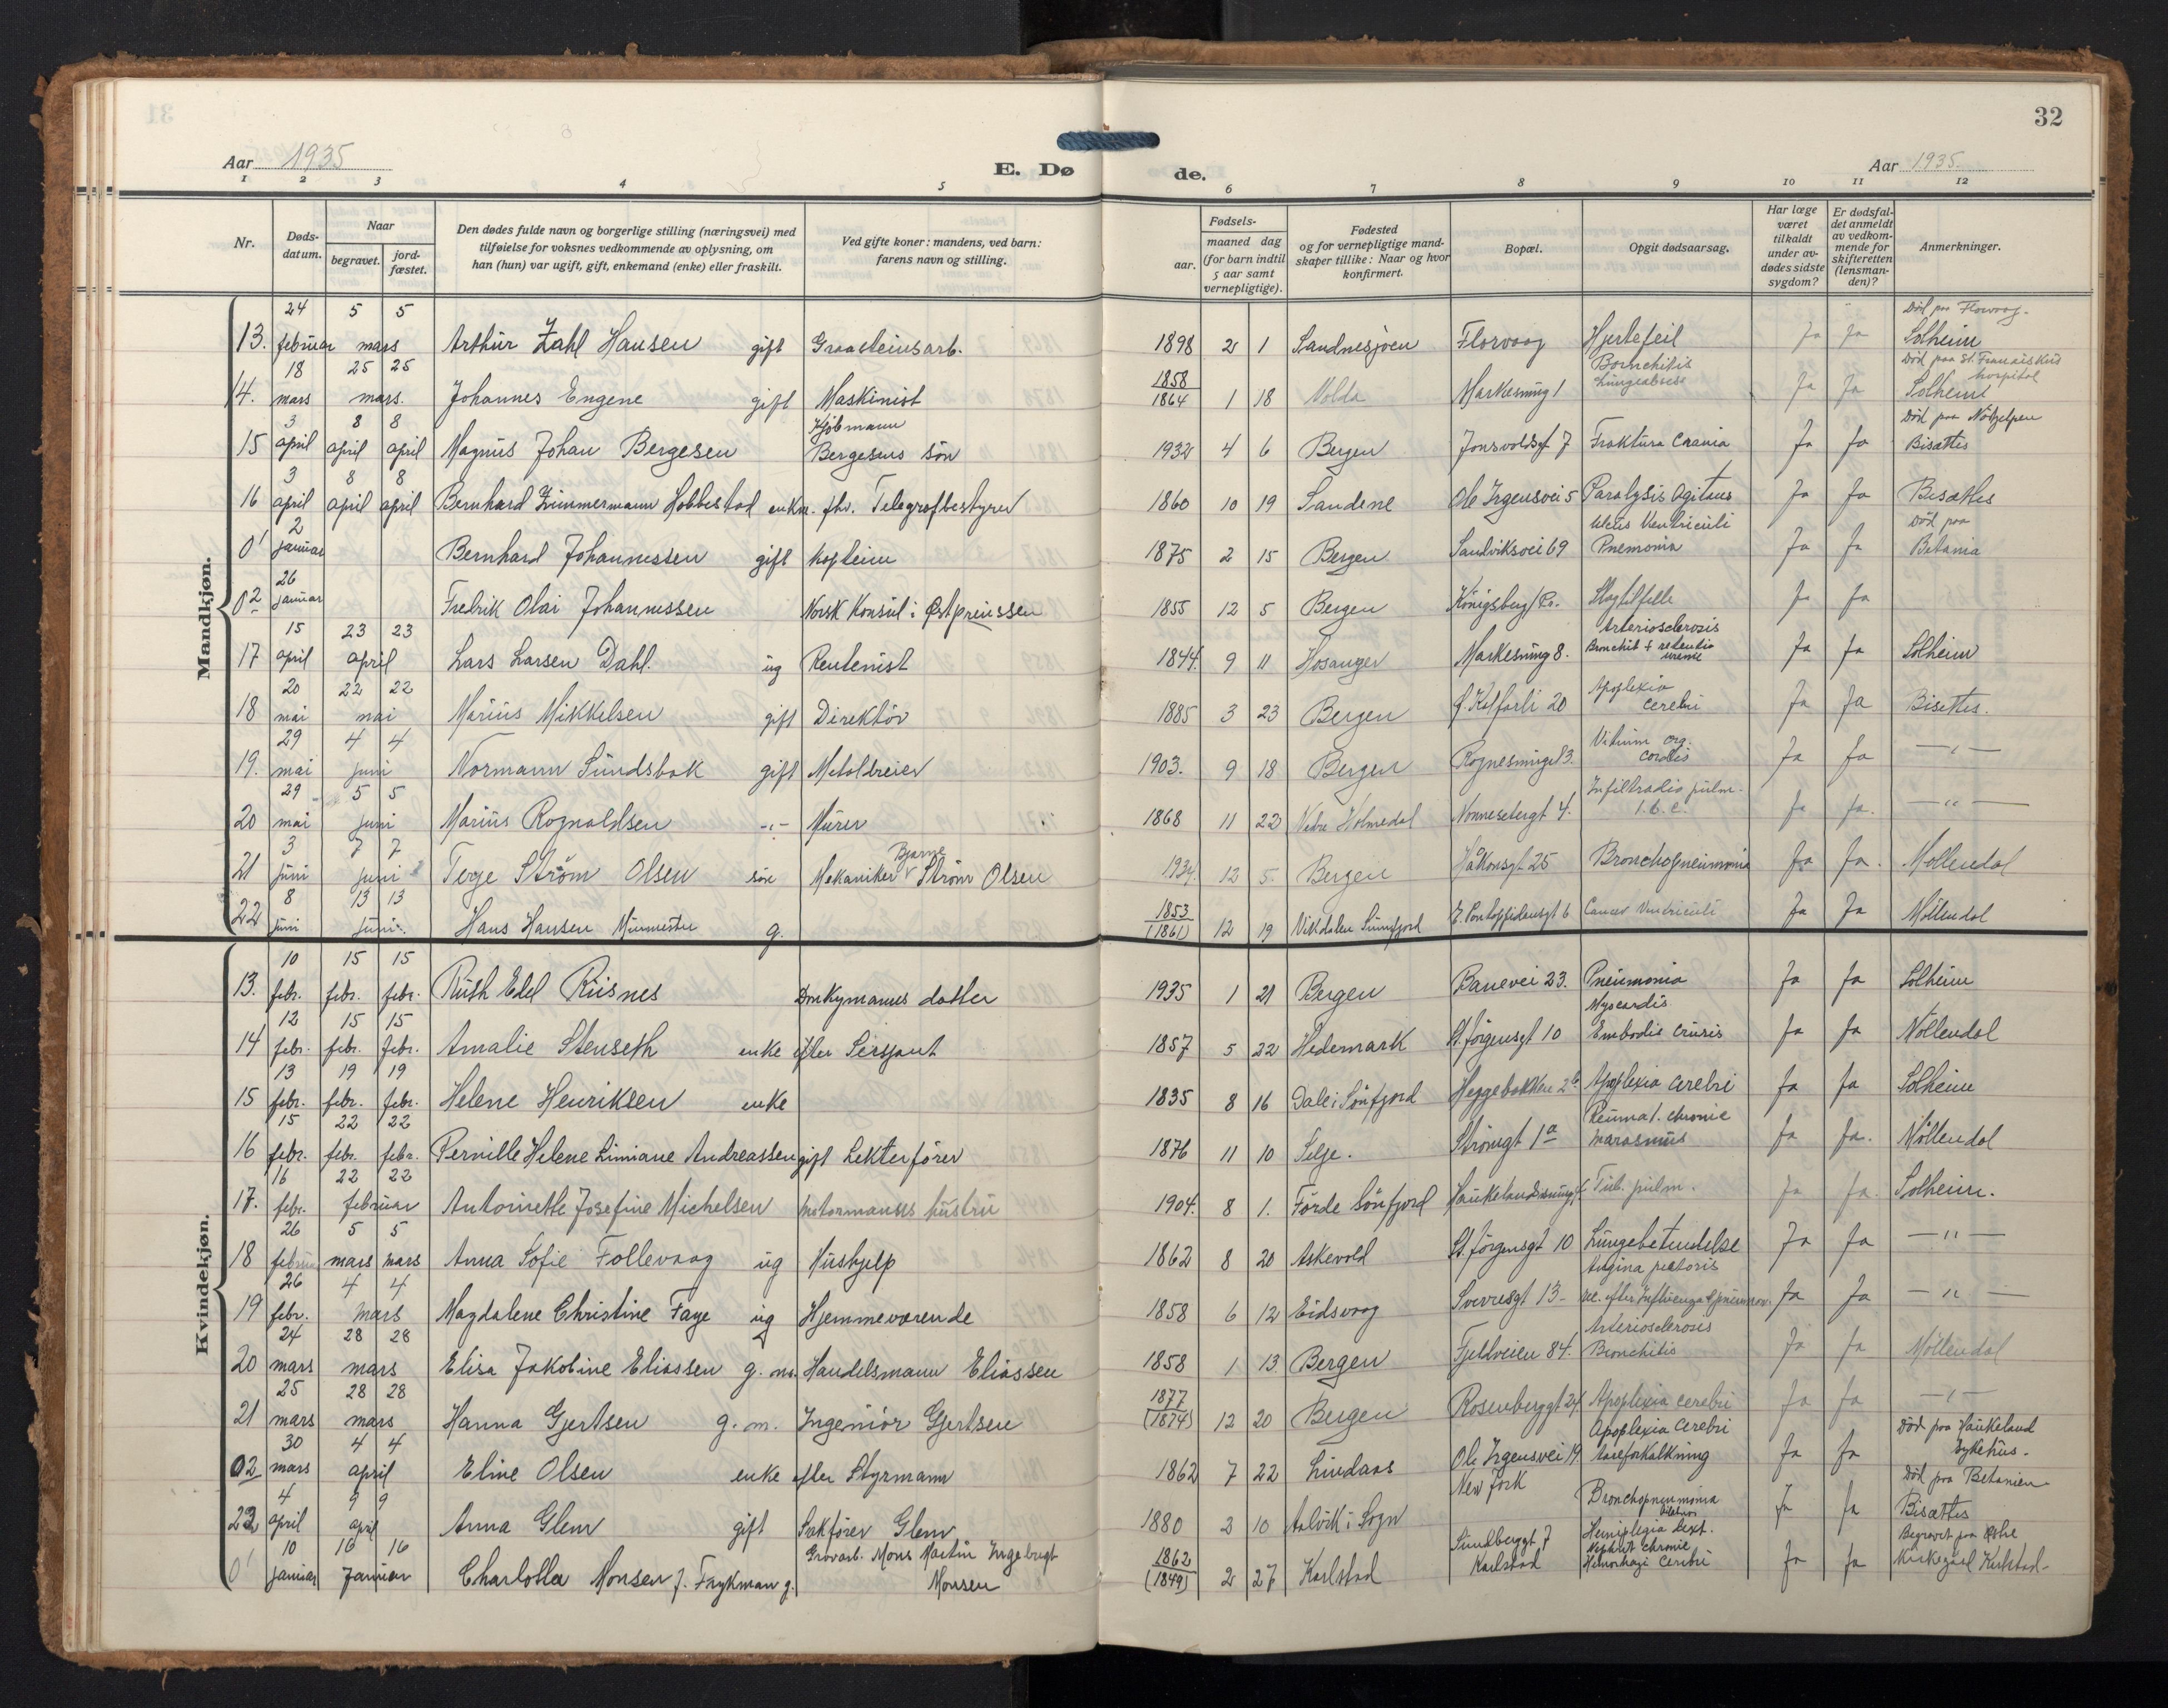 32
Aar 1935
E. Dø de.
Aar 1935.
1 2 3 4 5 6 7 8 9 10 11 12
Nr.
Døds-
datum.
Naar
begravet.
jord-
fæstet.
Den dødes fulde navn og borgerlige stilling (næringsvei) med
tilføielse for voksnes vedkommende av oplysning, om
han (hun) var ugift, gift, enkemand (enke) eller fraskilt.
Ved gifte koner: mandens, ved barn:
farens navn og stilling.
Fødsels-
aar.
maaned dag
(for barn indtil
5 aar samt
vernepligtige).
Fødested
og for vernepligtige mand-
skaper tillike: Naar og hvor
konfirmert.
Bopæl.
Opgit dødsaarsag.
Har læge
været
tilkaldt
under av-
dødes sidste
sygdom?
Er dødsfal-
det anmeldt
av vedkom-
mende for
skifteretten
(lensman-
den)?
Anmerkninger.
Mandkjøn.
24 5 5 Død paa Florvaag.
13. februar mars Arthur Zahl Hansen gift Graasteinsarb. 1898 2 1 Sandnesjøen Florvaag Hjertefeil Ja Ja Solheim
18 25 25 1858 Bornchitis Død paa St. Franciskus hospital
14. mars mars. Johannes Engene gift Maskinist 1864 1 18 Volda Markesmug 1 Lungeabsess Ja Ja Solheim
3 8 8 Kjøbmann Død paa Nöthjelpen
15 april april april Magnus Johan Bergesen Bergesens søn 1932 4 6 Bergen Jonsvoldsgt 7 Fraktura Crania Ja Ja Bisættes
3 8 8
16 april april april Bernhard Zimmermann Hobbestad enkm. fhv. Telegrafbestyrer 1860 10 19 Sandene Ole Irgensvei 5 Paralysis Agitans Ja Ja Bisættes
2 Ulcus Ventriculi Død paa
0 1 januar Bernhard Johannessen gift kaptein 1875 2 15 Bergen Sandviksvei 69 Pnemonia Ja Ja Betania
26
0 2 januar Fredrik Olai Johannessen Norsk Konsul i Østpreussen 1855 12 5 Bergen Königsberg/Pr. Slagtilfelle Ja Ja
15 23 23 Arteriosclerosis
17 april april Lars Larsen Dahl. ug Rentenist 1844. 9 11 Hosanger Markesmug 8. Bronchit + retentio urenie Ja Ja Solheim
20 22 22 Apoplexia
18 mai mai Marius Mikkelsen gift Direktör 1885 3 23 Bergen Ø. Kalfarli 20 cerebri Ja Ja Bisettes.
29 4 4 Vitium org.
19. mai juni Normann Sundsbak gift Metaldreier 1903. 9 18 Bergen Rognesmuget 3. cordis Ja Ja — " —
29 5 5 Infiltradio pulm.
20 mai juni Marius Rognaldsen -"- Murer 1868 11 22 Vedre Holmedal Nonnesetergt 4. t.b.c. Ja Ja. — " —
3 7 7 Bjarne
21 juni juni Terje Strøm Olsen søn Mekaniker Strøm Olsen 1934. 12 5. Bergen Håkonsgt. 25 Bronchopneumonia Ja Ja. Møllendal
8 13 13 1853
22 juni juni. Hans Hansen Murmester g. (1861) 12 19 Vikdalen Sunnfjord E. Pontoppidansgt 6 Cancer Ventriculi Ja Ja Møllendal
Kvindekjøn.
10 15 15
13. febr. febr. febr. Ruth Edel Risnes Donkymanns datter 1935 1 21 Bergen Banevei 23. Pneumonia Ja Ja Solheim
12 15 15 Myocardis
14 febr. febr. febr. Amalie Stenseth enke efter Sersjant 1857 5 22 Hedemark St. Jörgensgt 10 Embodis cruris Ja Ja Møllendal
13 19 19
15 febr. febr. febr. Helene Henriksen enke 1835 8 16 Dale i Sönfjord Heggebakken 2b Apoplexia cerebri Ja Ja Solheim
15 22 22 Reumat. chronic
16 febr. febr. febr. Pernille Helene Liniane Andreassen gift Lekterförer 1876 11 10 Selje. Strömgt 1a marasmus Ja Ja. Møllendal
16 22 22
17. febr. februar Antoinette Josefine Michelsen motormanns hustru 1904. 8 1. Förde Sönfjord Haukelandsmug Tub. pulm. Ja Ja. Solheim.
26 5 5
18 februar mars mars Anna Sofie Follevaag ug Hushjelp 1862 8 20 Askevold St. Jörgensgt 10 Lungebetendelse Ja Ja — " —
26 4 4 Angina pectoris
19 febr. mars Magdalene Christine Faye ug Hjemmeværende 1858 6 12 Eidsvaag Sverresgt 13 efter Influenza Ja Ja — " —
24 28 28 Arteriosclerosis
20 mars mars Elisa Jakobine Eliassen g. m. Handelsmann Eliassen 1858 1 13 Bergen Fjeldveien 84. Bronchitis Ja Ja Møllendal
25 28 28 1877
21 mars mars Hanna Gjertsen g. m. Ingeniør Gjertsen (1874) 12 20 Bergen Rosenberggt 24 Apoplexia cerebri Ja Ja — " —
30 4 4 Apoplexia cerebri Död paa Haukeland
02 mars april Eline Olsen enke efter Styrmann 1862 7 22 Lindaas Ole Irgensvei 19. aareforkalkning Ja Ja Sykehus.
4 9 9 New York Bronchopneumonia Död paa Betanien
22 april april Anna Glem gift Sakförer Glem 1880 2 10 Aalvik i Sogn Hemiplegia dext. Ja Ja Bisættes
10 16 16 Grovarb. Mons Martin Ingebrigt 1862 Sundbergt, 7 Nephrit chronic Begravet paa Østre
0 1 januar Januar Charlotta Monsen f. Frykman g. Monsen (1849) 2 27 Karlstad Karlstad Hemorhagi cerebri Ja Ja Kirkegård Karlstad